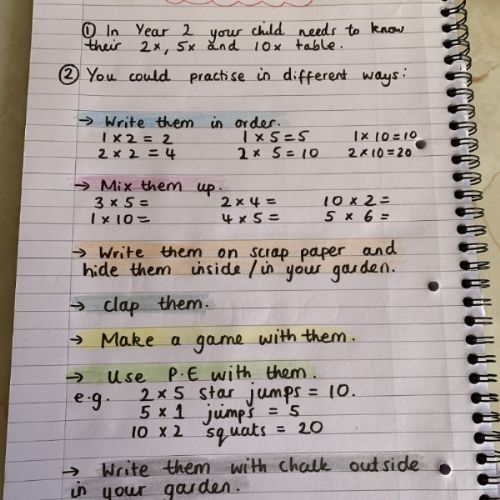 ① In Year 2 your child needs to know
their 2x, 5x and 10x table.
② You could practise in different ways:
→ Write them in order.
1 x 2 = 2 1 x 5 = 5 1 x 10 = 10
2 x 2 = 4 2 x 5 = 10 2 x 10 = 20
→ Mix them up.
3 x 5 = 2 x 4 = 10 x 2 =
1 x 10 = 4 x 5 = 5 x 6 =
→ Write them on scrap paper and
hide them inside / in your garden.
→ clap them.
→ Make a game with them.
→ Use P.E with them.
e.g. 2 x 5 star jumps = 10.
5 x 1 jumps = 5
10 x 2 squats = 20
→ Write them with chalk outside
in your garden.